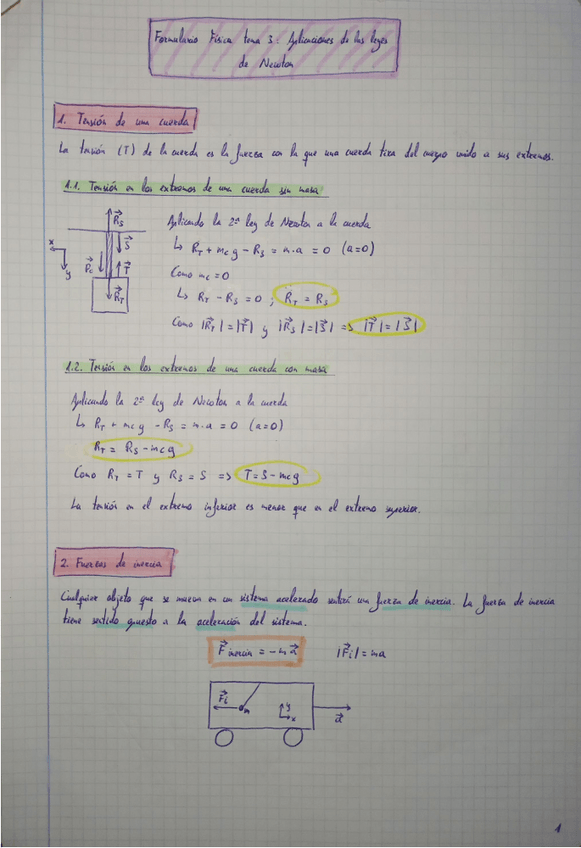 Formulario Física tema 3: Aplicaciones de las leyes
de Newton
1. Tensión de una cuerda
La tensión (T) de la cuerda es la fuerza con la que una cuerda tira del cuerpo unido a sus extremos.
1.1. Tensión en los extremos de una cuerda sin masa
Aplicando la 2ª ley de Newton a la cuerda
↳ R_T + m_c g - R_S = m·a = 0 (a=0)
Como m_c = 0
↳ R_T - R_S = 0 ; R_T = R_S
Como |R⃗_T| = |T⃗| y |R⃗_S| = |S⃗| => |T⃗| = |S⃗|
R⃗_S
S⃗
x
y
P⃗_c
T⃗
R⃗_T
1.2. Tensión en los extremos de una cuerda con masa
Aplicando la 2ª ley de Newton a la cuerda
↳ R_T + m_c g - R_S = m·a = 0 (a=0)
R_T = R_S - m_c g
Como R_T = T y R_S = S => T = S - m_c g
La tensión en el extremo inferior es menor que en el extremo superior.
2. Fuerzas de inercia
Cualquier objeto que se mueva en un sistema acelerado sentirá una fuerza de inercia. La fuerza de inercia
tiene sentido opuesto a la aceleración del sistema.
F⃗ inercia = -m a⃗ |F⃗_i| = ma
F⃗_i
m
y
x
a⃗
1